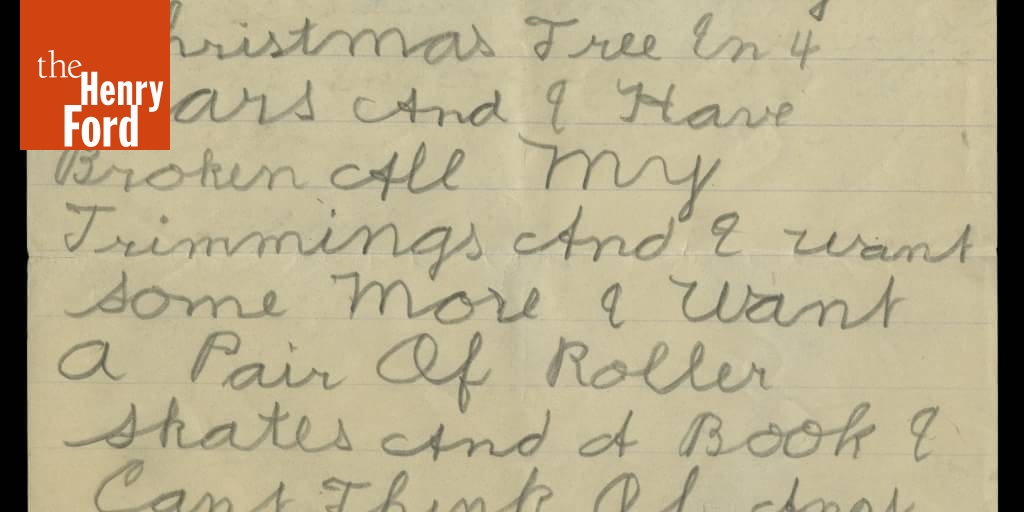 the
Henry
Ford
hristmas Tree In 4
ars And I Have
Broken All My
Trimmings And I want
Some More I Want
A Pair Of Roller
Skates And A Book I
Cant Think Of